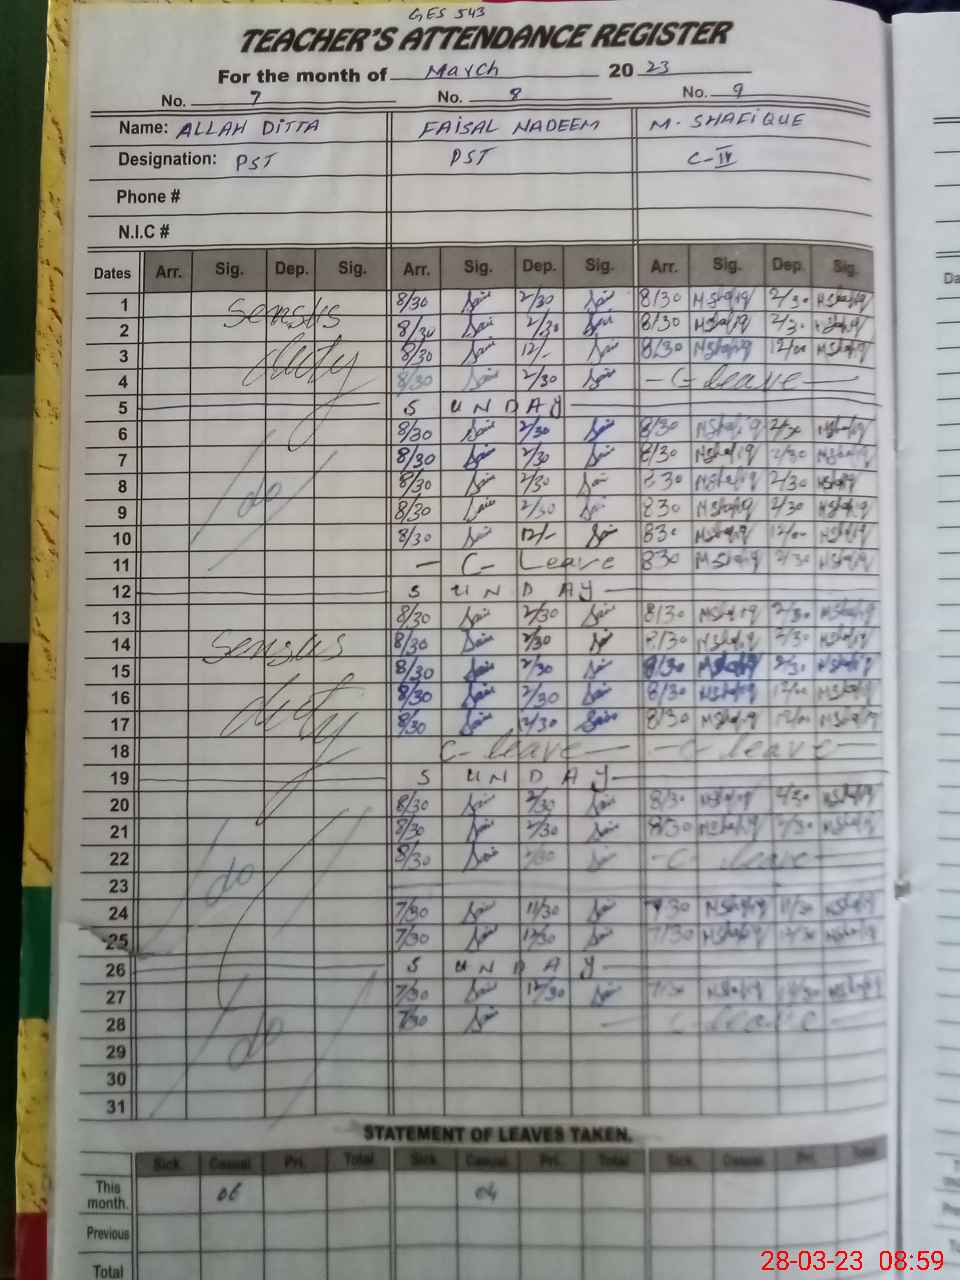 GES 543
TEACHER'S ATTENDANCE REGISTER
For the month of March 2023
No. 7 No. 8 No. 9
Name: ALLAH DITTA FAISAL NADEEM M. SHAFIQUE
Designation: PST PST C-IV
Phone #
N.I.C #
Dates Arr. Sig. Dep. Sig. Arr. Sig. Dep. Sig. Arr. Sig. Dep. Sig.
1 Sensus 8/30 2/30 8/30 MShafiq 2/30 MShafiq
2 8/30 2/30 8/30 MShafiq 2/30 MShafiq
3 duty 8/30 12/- 8/30 MShafiq 12/00 MShafiq
4 8/30 2/30 - C - leave -
5 SUNDAY
6 8/30 2/30 8/30 MShafiq 2/30 MShafiq
7 8/30 2/30 8/30 MShafiq 2/30 MShafiq
8 do 8/30 2/30 8 30 MShafiq 2/30 MShafiq
9 8/30 2/30 830 MShafiq 2/30 MShafiq
10 8/30 12/- 830 MShafiq 12/00 MShafiq
11 - C - Leave 830 MShafiq 2/30 MShafiq
12 SUNDAY
13 8/30 2/30 8/30 MShafiq 2/30 MShafiq
14 Sensus 8/30 2/30 8/30 MShafiq 2/30 MShafiq
15 8/30 2/30 8/30 MShafiq 2/30 MShafiq
16 duty 8/30 2/30 8/30 MShafiq 12/00 MShafiq
17 8/30 12/30 8/30 MShafiq 12/00 MShafiq
18 C - leave - - C - leave -
19 SUNDAY
20 8/30 2/30 8/30 MShafiq 2/30 MShafiq
21 8/30 2/30 8/30 MShafiq 2/30 MShafiq
22 do 8/30 2/30 - C - leave
23
24 7/30 11/30 7/30 MShafiq 11/30 MShafiq
25 7/30 12/30 7/30 MShafiq 12/30 MShafiq
26 SUNDAY
27 7/30 12/30 7/30 MShafiq 12/30 MShafiq
28 do 7/30 - C - leave -
29
30
31
STATEMENT OF LEAVES TAKEN.
Sick. Casual Pri. Total Sick. Casual Pri. Total Sick. Casual Pri. Total
This month. 06 04
Previous
Total
28-03-23 08:59